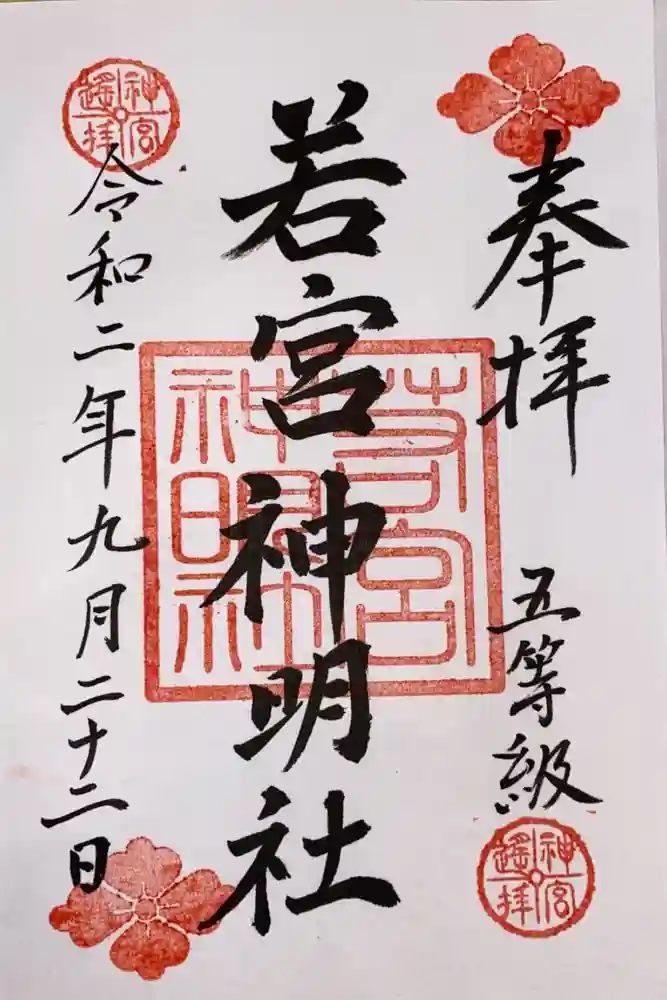 奉拝
五等級
神宮遙拝
若宮神明社
若宮神明社
神宮遙拝
令和二年九月二十二日